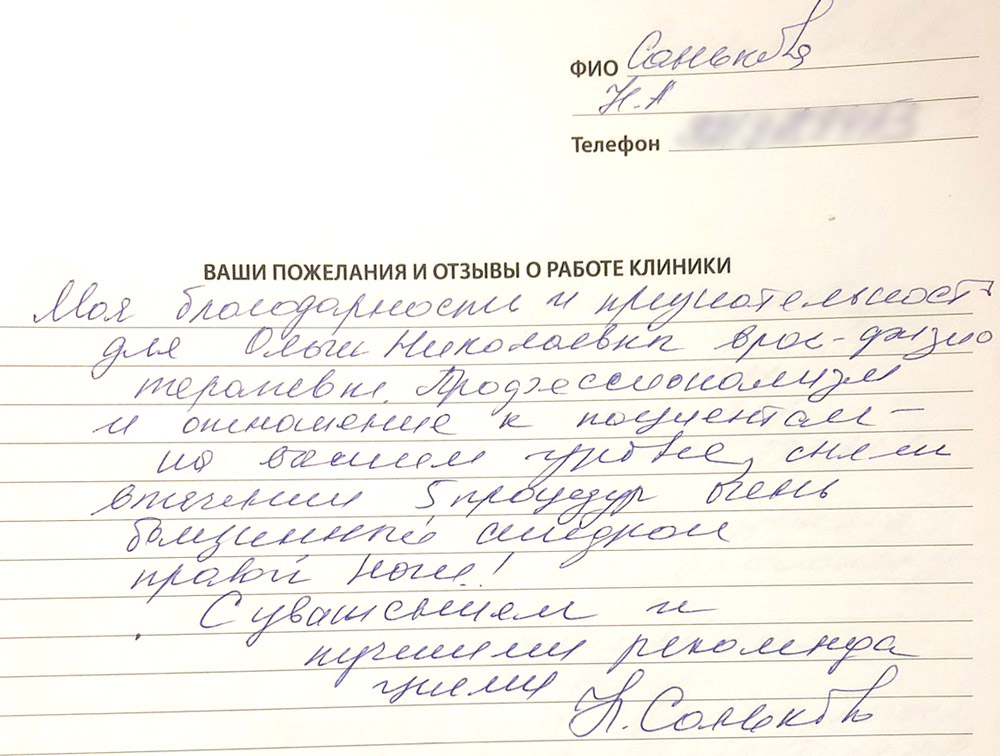 ФИО Санькова
Н.А
Телефон
ВАШИ ПОЖЕЛАНИЯ И ОТЗЫВЫ О РАБОТЕ КЛИНИКИ
Моя благодарность и признательность
для Ольги Николаевны врач-физио
терапевты. Профессионализм
и отношение к пациентам –
на высшем уровне, сняли
втечении 5 процедур очень
болезненный синдром
правой ноги!
С уважением и
лучшими рекоменда
циями Н. Санькова